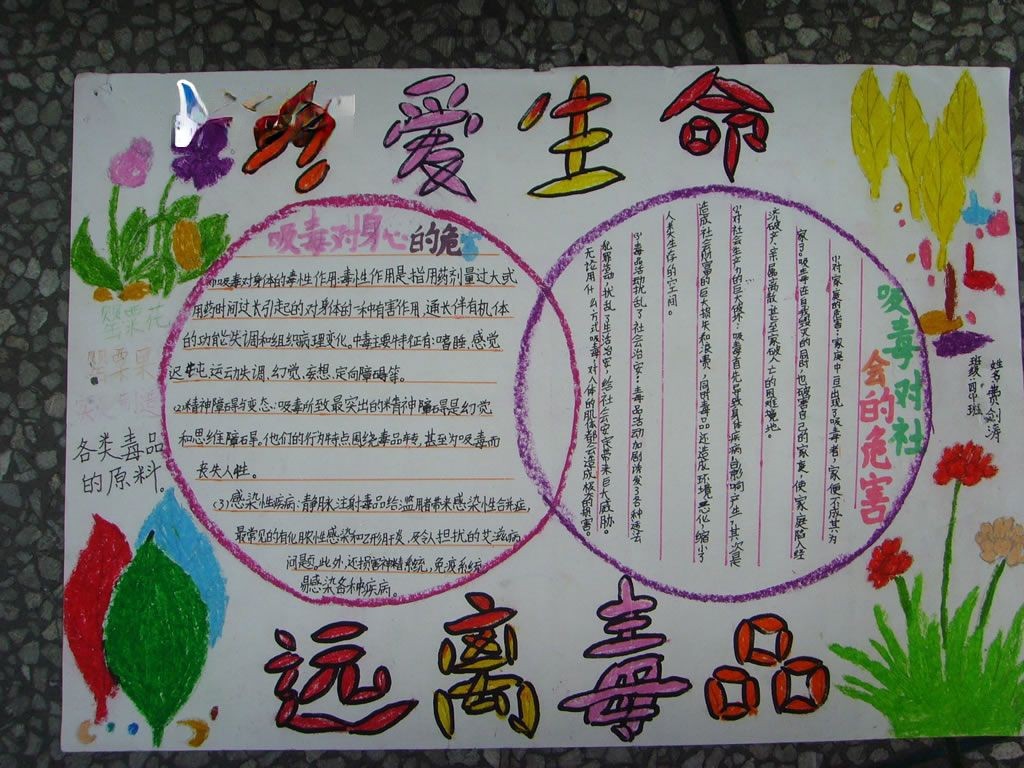 爱生命
吸毒对身心的危
(1)吸毒对身体的毒性作用:毒性作用是指用药剂量过大或
用药时间过长引起的对身体的一种有害作用,通长伴有机体
的功能失调和组织病理变化。中毒主要特征有:嗜睡、感觉
迟钝、运动失调、幻觉、妄想、定向障碍等。
(2)精神障碍与变态:吸毒所致最突出的精神障碍是幻觉
和思维障碍。他们的行为特点围绕毒品转,甚至为吸毒而
丧失人性。
(3)感染性疾病:静脉注射毒品给滥用者带来感染性合并症,
最常见的有化脓性感染和乙形肝炎,及令人担扰的艾滋病
问题。此外,还损害神精系统,免疫系统,
易感染各种疾病。
吸毒对社
会的危害
(1)对家庭的危害:家庭中一旦出现了吸毒者,家便不成其为
家了。吸毒者在自我毁灭的同时,也破害自己的家庭,使家庭陷入经
济破产、亲属离散、甚至家破人亡的困境地。
(2)对社会生产力的巨大破坏:吸毒首先导致身体疾病,影响产生,其次是
造成社会财富的巨大损失和浪费,同时毒品还造成环境恶化,缩小了
人类生存的空间。
(3)毒品活动扰乱了社会治安:毒品活动加剧诱发了各种违法
犯罪活动,扰乱了生活治安,给社会安定带来巨大威胁。
无论用什么方式吸毒,对人体的肌体都会造成极大的损害。
姓名:费剑涛
班级:四中班
罂粟花
罂粟果
各类毒品
的原料。
远离毒品